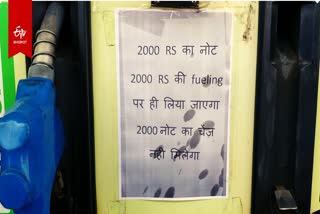 2000 RS का नोट
2000 RS की fueling
पर ही लिया जाएगा
2000 नोट का चेंज
नही मिलेगा